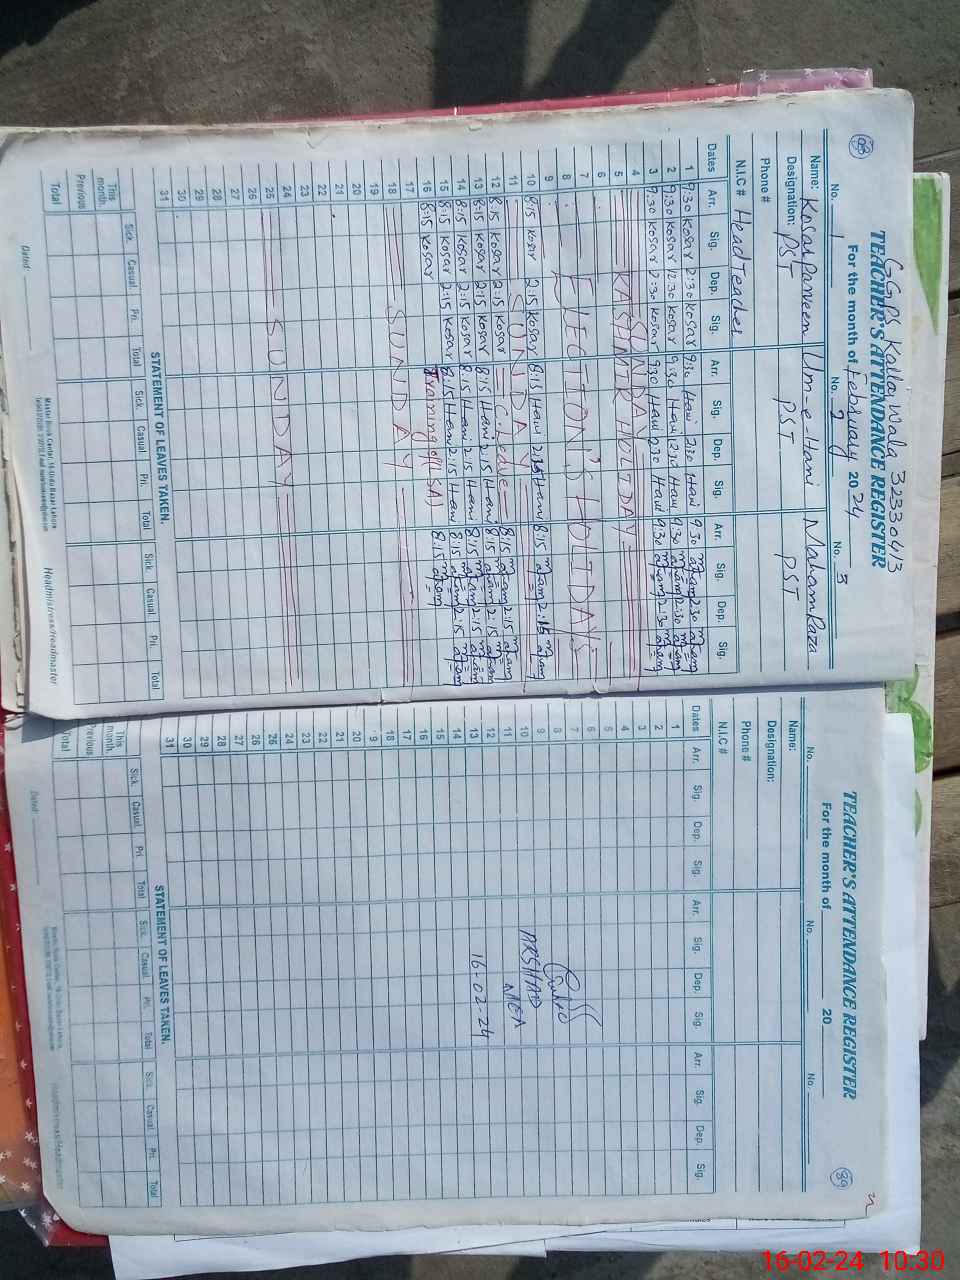 G.G.P.S Kallai Wala 32330413
TEACHER'S ATTENDANCE REGISTER
For the month of February 2024
No. 1 No. 2 No. 3
Name: Kosar Parveen Um-e-Hani Maham Raza
Designation: PST PST PST
Phone #
N.I.C # Head Teacher
Dates Arr. Sig. Dep. Sig. Arr. Sig. Dep. Sig. Arr. Sig. Dep. Sig.
1 9:30 Kosar 2:30 Kosar 9:30 Hani 2:30 Hani 9:30 Maham 2:30 Maham
2 9:30 Kosar 12:30 Kosar 9:30 Hani 12:30 Hani 9:30 Maham 12:30 Maham
3 9:30 Kosar 2:30 Kosar 9:30 Hani 2:30 Hani 9:30 Maham 2:30 Maham
4 SUNDAY
5 KASHMIR HOLIDAY
6
7 ELECTION'S HOLIDAYS
8
9
10 8:15 Kosar 2:15 Kosar 8:15 Hani 2:15 Hani 8:15 Maham 2:15 Maham
11 SUNDAY
12 8:15 Kosar 2:15 Kosar C.Leave 8:15 Maham 2:15 Maham
13 8:15 Kosar 2:15 Kosar 8:15 Hani 2:15 Hani 8:15 Maham 2:15 Maham
14 8:15 Kosar 2:15 Kosar 8:15 Hani 2:15 Hani 8:15 Maham 2:15 Maham
15 8:15 Kosar 2:15 Kosar 8:15 Hani 2:15 Hani 8:15 Maham 2:15 Maham
16 8:15 Kosar Training off (SA) 8:15 Maham
17
18 SUNDAY
19
20
21
22
23
24
25 SUNDAY
26
27
28
29
30
31
STATEMENT OF LEAVES TAKEN.
Sick. Casual Pri. Total Sick. Casual Pri. Total Sick. Casual Pri. Total
This month.
Previous
Total
Dated: Headmistress/Headmaster
TEACHER'S ATTENDANCE REGISTER
89
For the month of 20
No. No. No.
Name:
Designation:
Phone #
N.I.C #
Dates Arr. Sig. Dep. Sig. Arr. Sig. Dep. Sig. Arr. Sig. Dep. Sig.
1
2
3
4
5
6
7
8
9
10 ARSHAD
11 MEA
12
13 16-02-24
14
15
16
17
18
19
20
21
22
23
24
25
26
27
28
29
30
31
STATEMENT OF LEAVES TAKEN.
Sick. Casual Pri. Total Sick. Casual Pri. Total Sick. Casual Pri. Total
This month.
Previous
Total
Dated: Headmistress/Headmaster
16-02-24 10:30